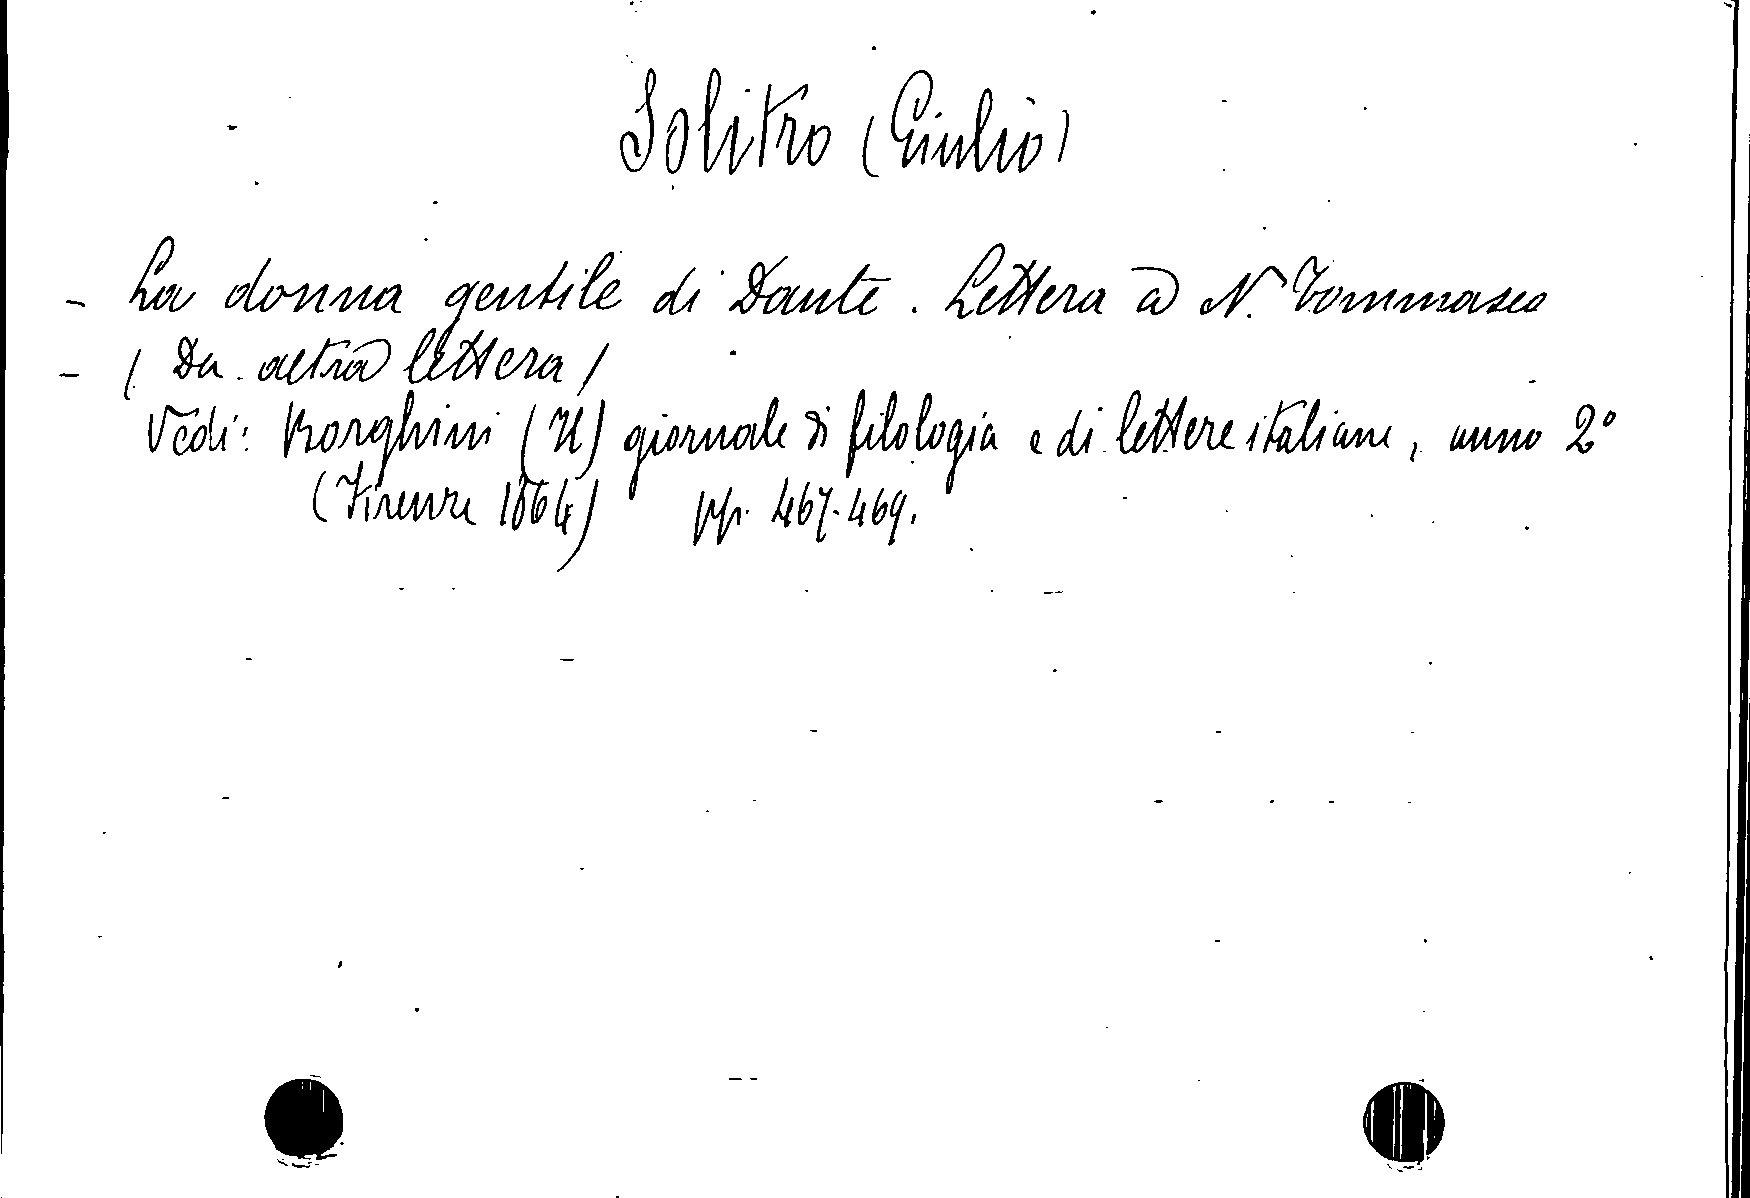 Solitro (Giulio)
- La donna gentile di Dante. Lettera a N. Tommaseo
- (Da altra lettera)
Vedi: Borghini (Il) giornale di filologia e di lettere italiane, anno 2°
(Firenze 1864) pp. 467-469.